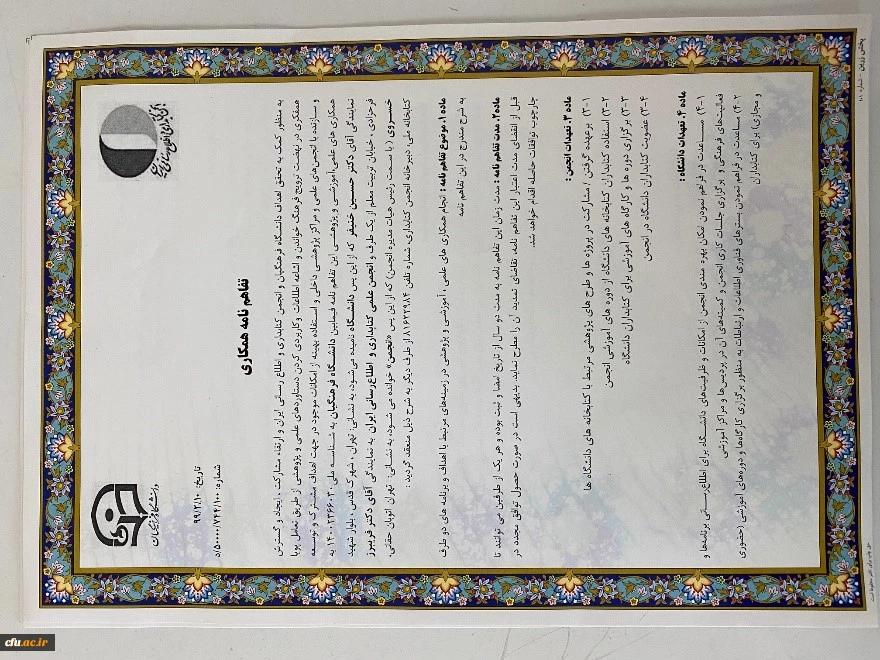 دانشگاه فرهنگیان
شماره: ۵۰۰۰۰/۷۴۴/۱۰۰/د
تاریخ: ۹۹/۲/۱۰
تفاهم نامه همکاری
به منظور کمک به تحقق اهداف دانشگاه فرهنگیان و انجمن کتابداری و اطلاع رسانی ایران و ارتقاء مشارکت، ایجاد و گسترش
همفکری در نهضت ترویج فرهنگ خواندن و اشاعه اطلاعات و کاربردی کردن دستاوردهای علمی و پژوهشی از طریق تعامل پویا
و سازنده با انجمن‌های علمی و مراکز پژوهشی داخلی و استفاده بهینه از امکانات موجود در جهت اهداف مشترک و توسعه
همکاری های علمی، آموزشی و پژوهشی این تفاهم نامه فیمابین دانشگاه فرهنگیان به شناسه ملی ۱۴۰۰۲۳۶۶۰۳۰ به
نمایندگی آقای دکتر حسین خنیفر که از این پس دانشگاه نامیده می‌شود، به نشانی: تهران، شهرک قدس، بلوار شهید
فرحزادی، خیابان تربیت معلم از یک طرف و انجمن علمی کتابداری و اطلاع‌رسانی ایران به نمایندگی آقای دکتر فریبرز
خسروی (با سمت رئیس هیات مدیره انجمن) که از این پس «انجمن» خوانده می شود، به نشانی: تهران اتوبان حقانی،
کتابخانه ملی، دبیرخانه انجمن کتابداری، شماره تلفن ۸۱۶۲۲۹۸۴ از طرف دیگر به شرح ذیل منعقد گردید.
ماده ۱. موضوع تفاهم نامه : انجام همکاری های علمی، آموزشی و پژوهشی در زمینه‌های مرتبط با اهداف و برنامه های دو طرف
به شرح مندرج در این تفاهم نامه
ماده ۲. مدت تفاهم نامه : مدت زمان این تفاهم نامه به مدت دو سال از تاریخ امضا و ثبت بوده و هر یک از طرفین می توانند تا
قبل از انقضای مدت اعتبار این تفاهم نامه، تقاضای تمدید آن را مطرح نماید. بدیهی است در صورت حصول توافق مجدد در
چارچوب توافقات حاصله اقدام خواهد شد.
ماده ۳. تعهدات انجمن :
۳-۱) برعهده گرفتن / مشارکت در پروژه ها و طرح های پژوهشی مرتبط با کتابخانه های دانشگاه ها
۳-۲) استفاده کتابداران کتابخانه های دانشگاه از دوره های آموزشی انجمن
۳-۳) برگزاری دوره ها و کارگاه های آموزشی برای کتابداران دانشگاه
۳-۴) عضویت کتابداران دانشگاه در انجمن
ماده ۴. تعهدات دانشگاه :
۴-۱) مساعدت در فراهم نمودن امکان بهره مندی انجمن از امکانات و ظرفیت‌های دانشگاه برای اطلاع‌رسانی برنامه‌ها و
فعالیت‌های فرهنگی و برگزاری جلسات کاری انجمن و کمیته‌های آن در پردیس‌ها و مراکز آموزشی
۴-۲) مساعدت در فراهم نمودن بسترهای فناوری اطلاعات و ارتباطات به منظور برگزاری کارگاه‌ها و دوره‌های آموزشی (حضوری
و مجازی) برای کتابداران
cfu.ac.ir